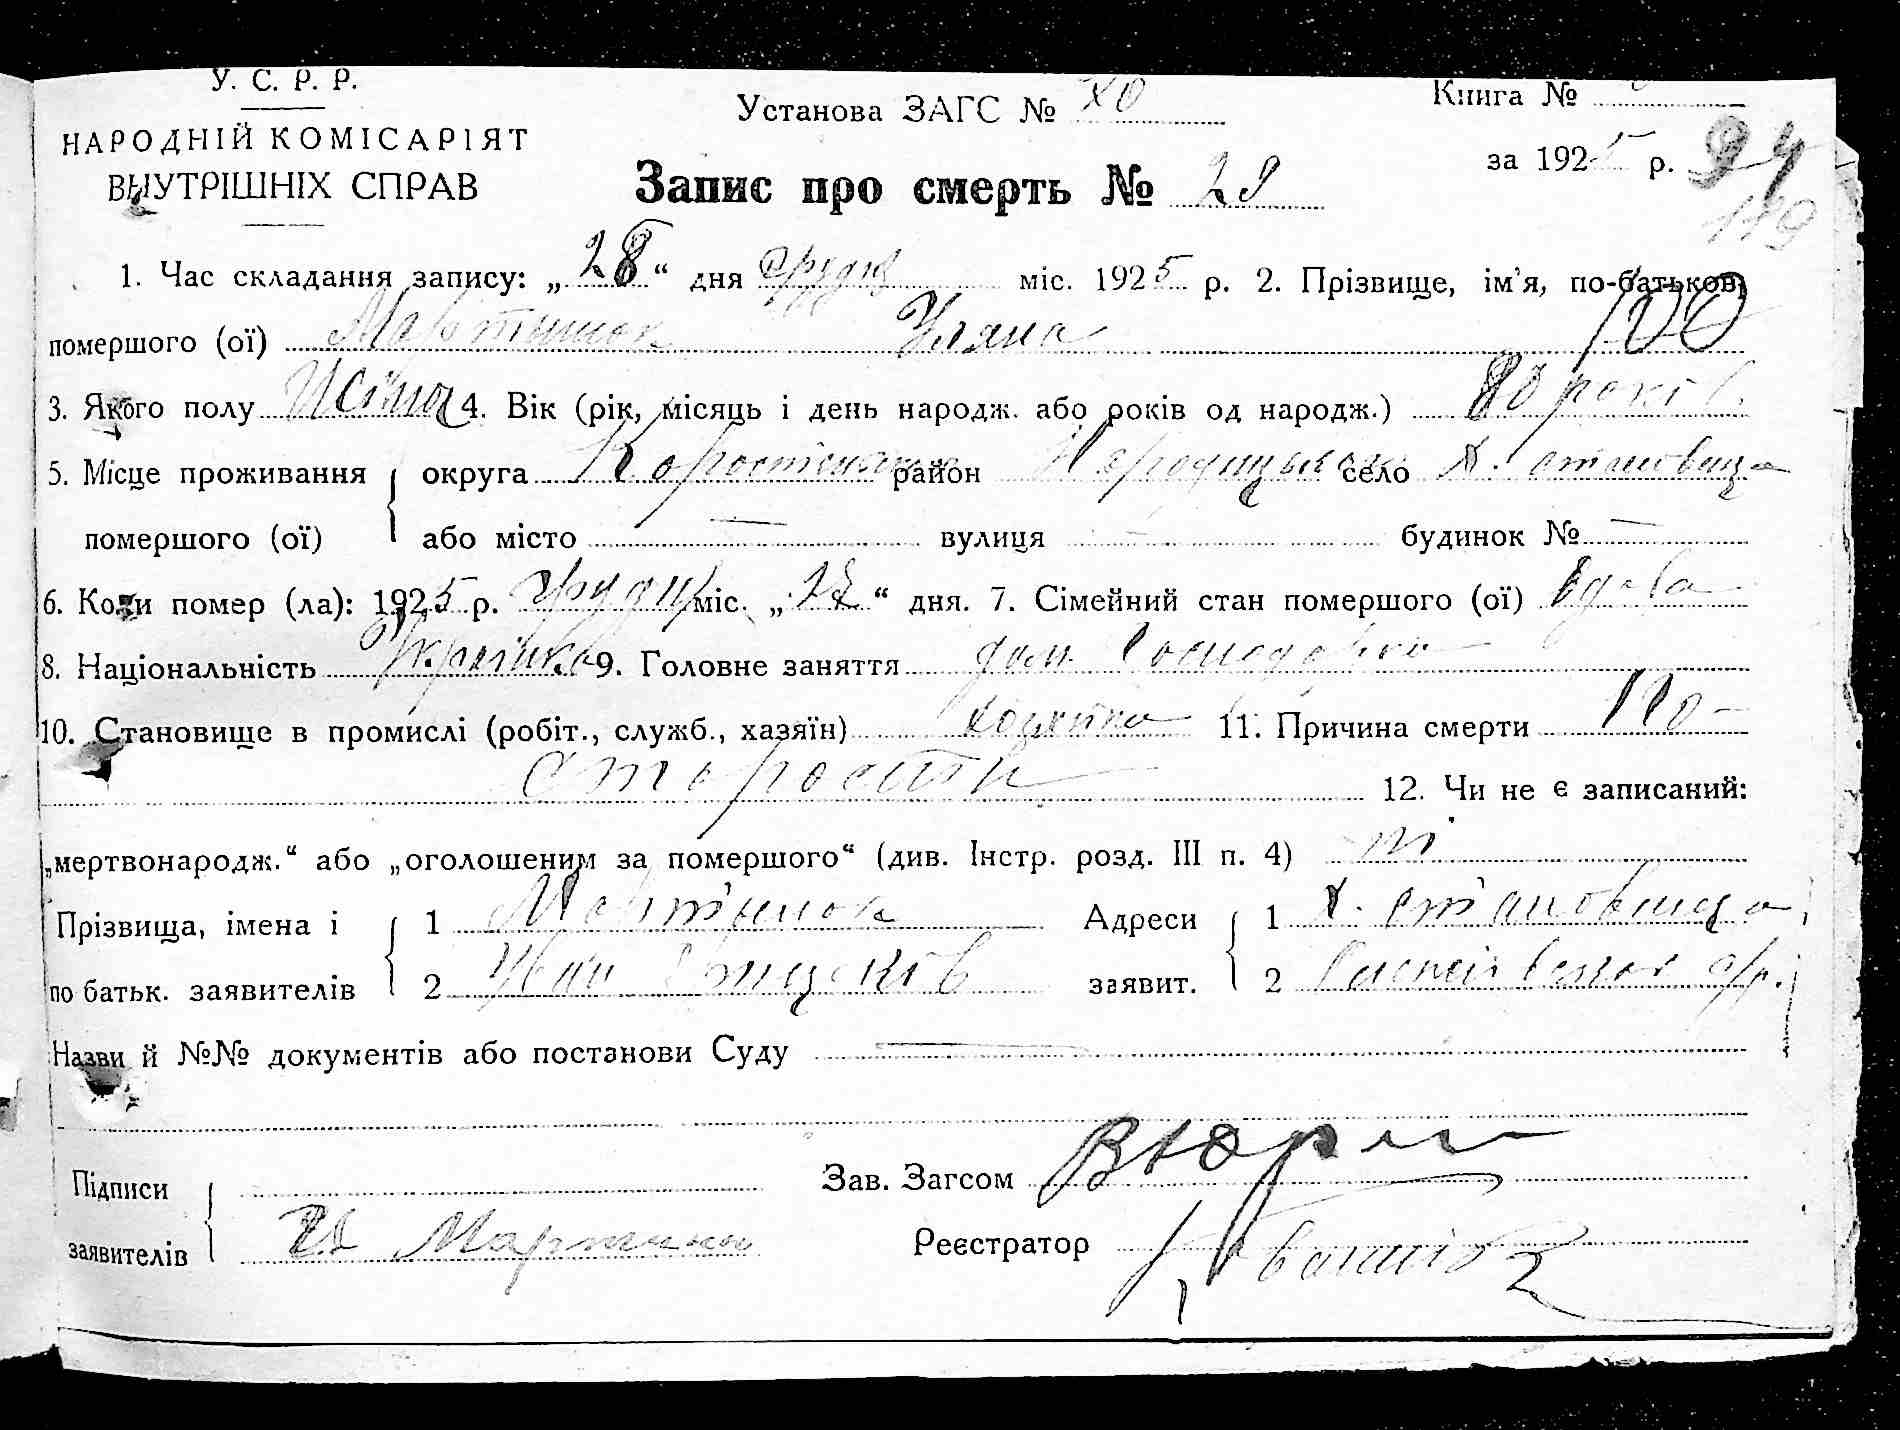 У. С. Р. Р.
НАРОДНІЙ КОМІСАРІЯТ
ВНУТРІШНІХ СПРАВ
Установа ЗАГС №
Книга №
за 1925 р. 94
119
Запис про смерть № 29
1. Час складання запису: „28“ дня грудн міс. 1925 р. 2. Прізвище, ім'я, по-батькові
помершого (ої) Мартинюк Уляна 100
3. Якого полу Жіноч 4. Вік (рік, місяць і день народж. або років од народж.) 80 років
5. Місце проживання округа Коростенська район Народицький село Х. становище
помершого (ої) або місто — вулиця — будинок № —
6. Коли помер (ла): 1925 р. грудн міс. „27“ дня. 7. Сімейний стан помершого (ої) вдова
8. Національність Українка 9. Головне заняття дом. Господарка
10. Становище в промислі (робіт., служб., хазяїн) 11. Причина смерти по
старости 12. Чи не є записаний:
„мертвонародж.“ або „оголошеним за помершого“ (див. Інстр. розд. III п. 4) ні
Прізвища, імена і 1 Мартинюк Адреси 1 Х. становище
по батьк. заявителів 2 Іван заявит. 2
Назви й №№ документів або постанови Суду —
Підписи
заявителів Мартинюк
Зав. Загсом
Реєстратор